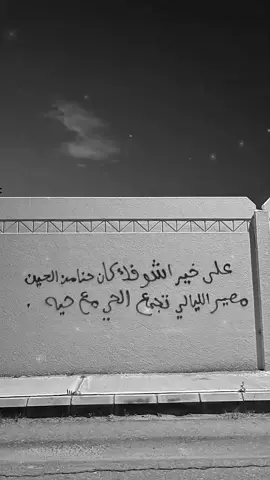 على خير اشوفك كان حنا من الحيين
مصير الليالي تجمع الحي مع حيه .